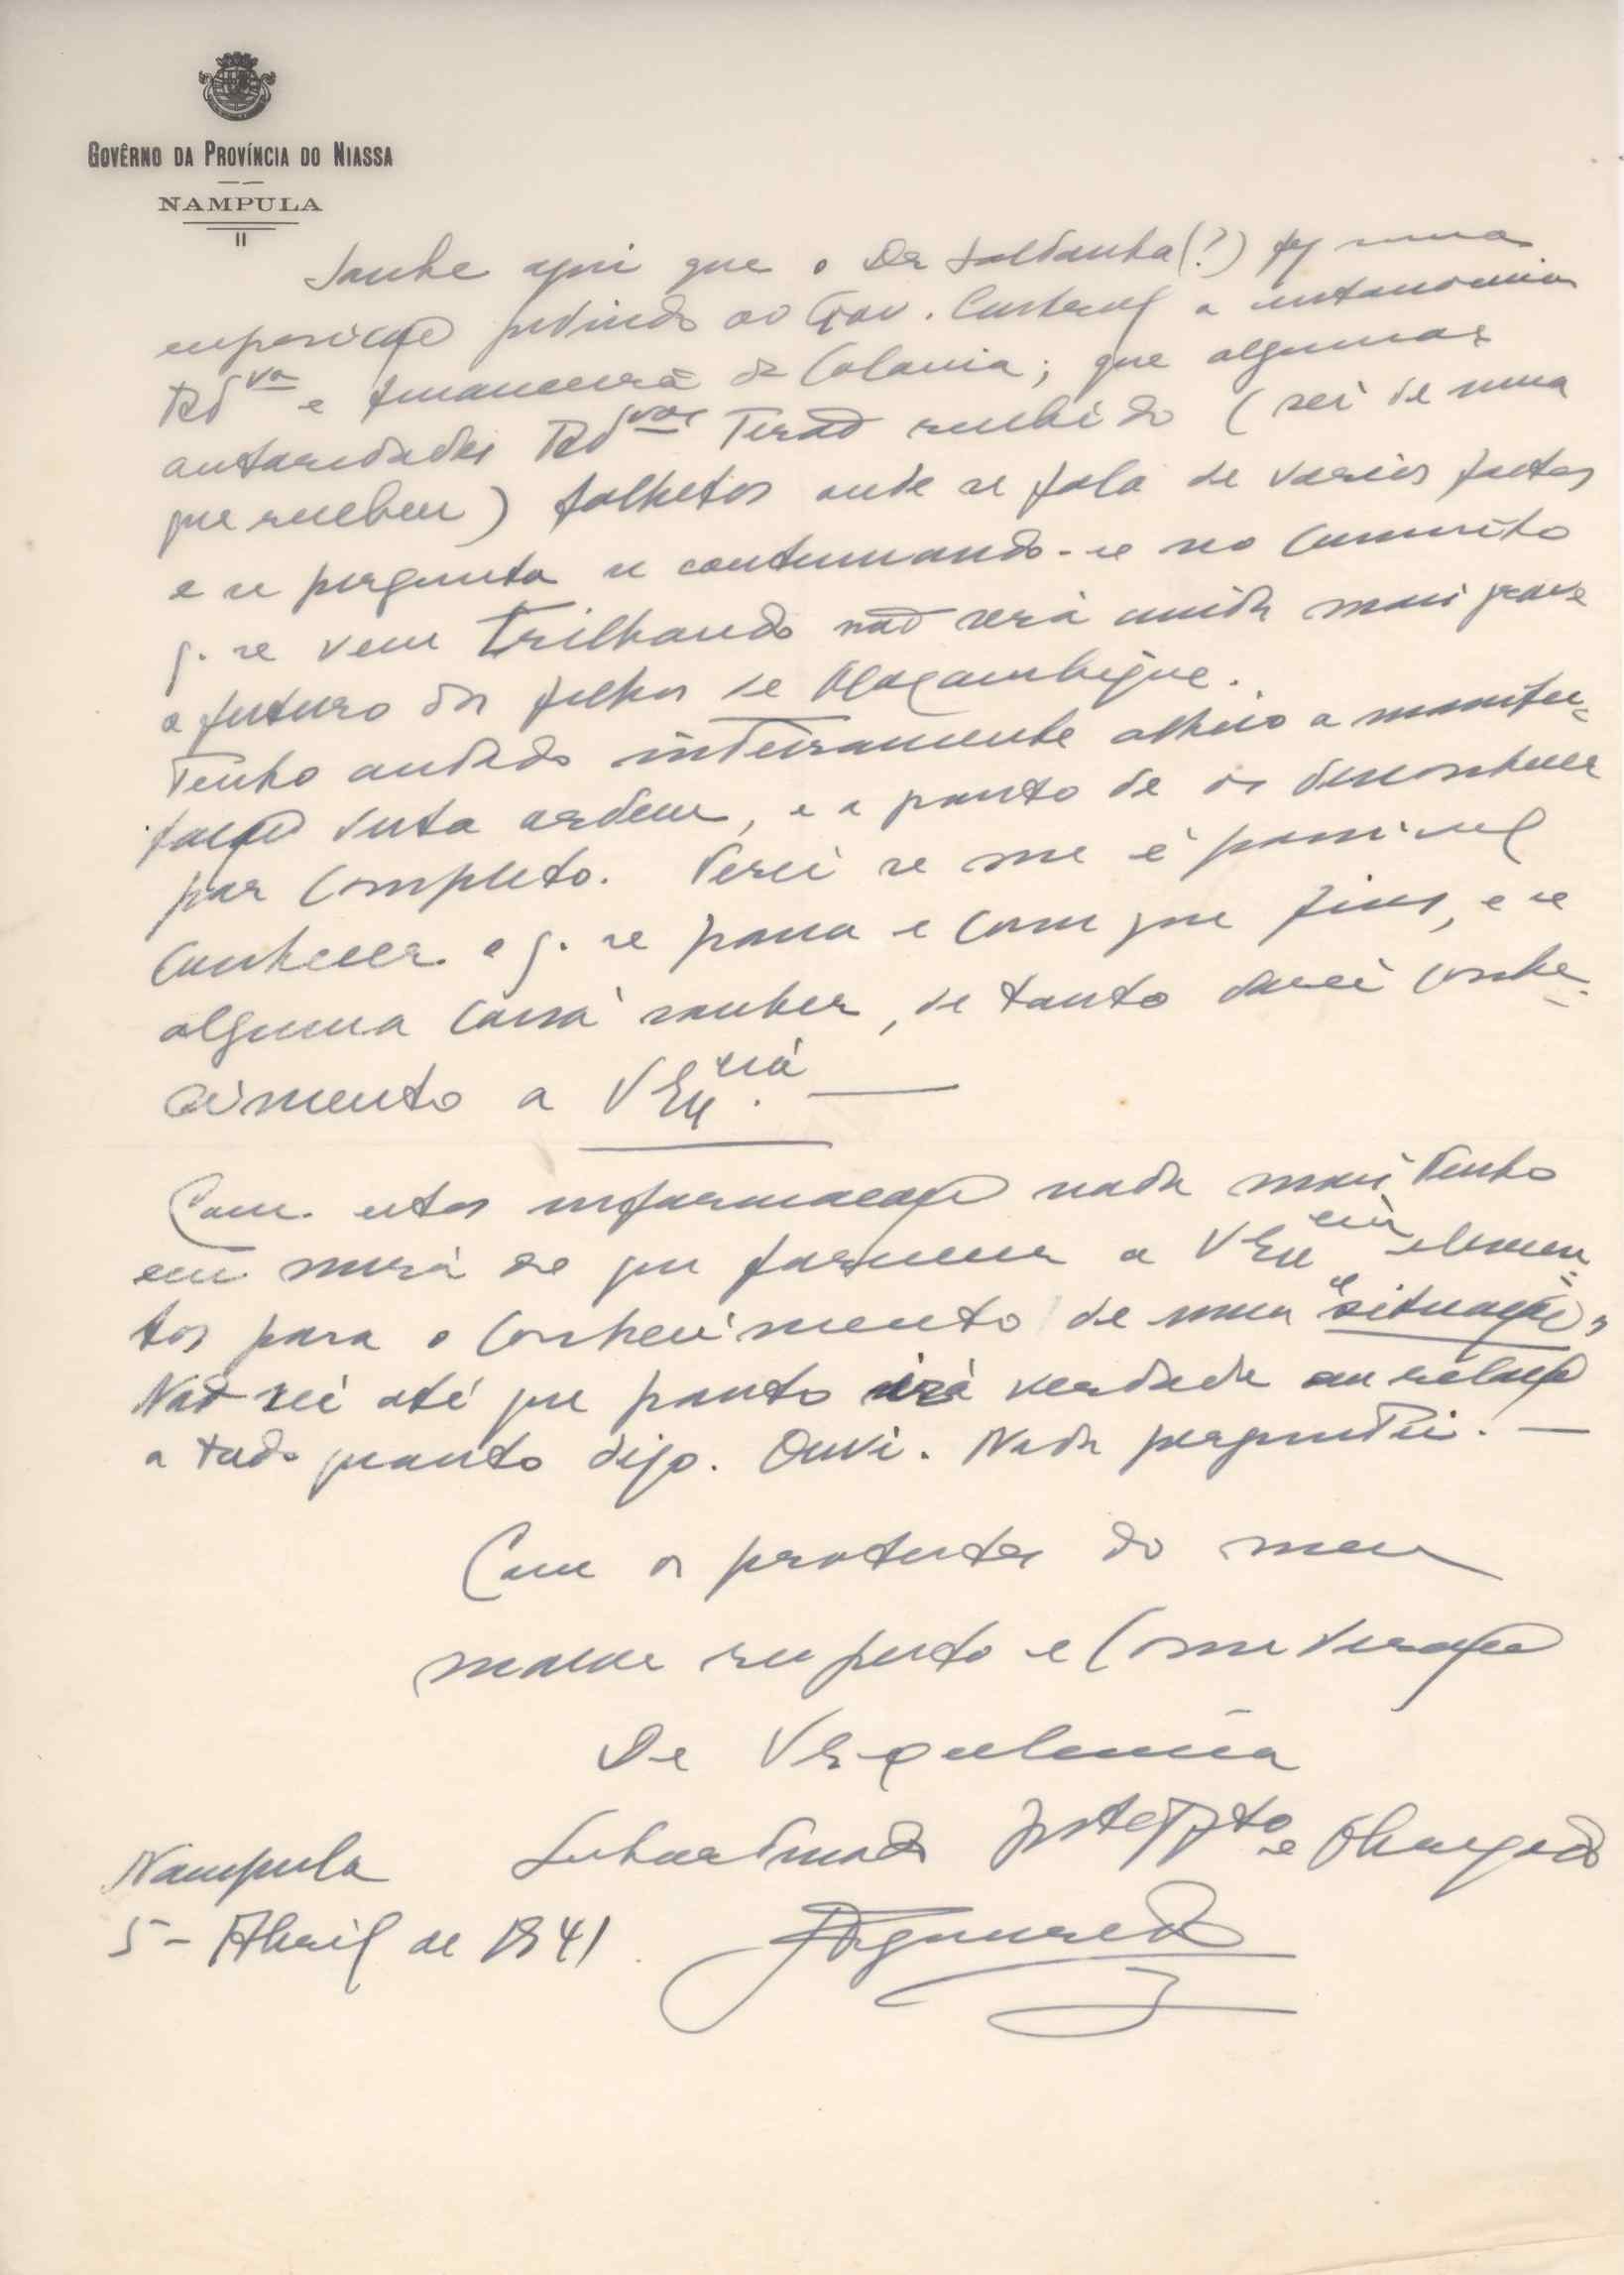 GOVÊRNO DA PROVÍNCIA DO NIASSA
NAMPULA
Soube aqui que o Dr Saldanha (?) fez uma
exposição pedindo ao Gov. Central a autonomia
Adva e financeira da Colonia; que algumas
autoridades Advas Terão recebido (sei de uma
que recebeu) folhetos onde se fala de varios factos
e se pergunta se continuando-se no caminho
q. se vem trilhando não será ainda mais grave
o futuro dos filhos de Moçambique.
Tenho andado inteiramente alheio a manifes-
tação desta ordem, e a ponto de os desconhecer
por completo. Verei se me é possivel
conhecer o q. se passa e com que fins, e se
alguma coisa souber, de tanto darei conhe-
cimento a V Excia. —
Com estas informação nada mais tenho
em mira do que fornecer a V Excia elemen-
tos para o conhecimento de uma "situação"
Não sei até que ponto irá verdade em relação
a tudo quanto digo. Ouvi. Nada perguntei. —
Com os protestos do meu
maior respeito e consideração
De V Excelencia
Subordinado Mto e Obrigado
Nampula
5 - Abril de 1941